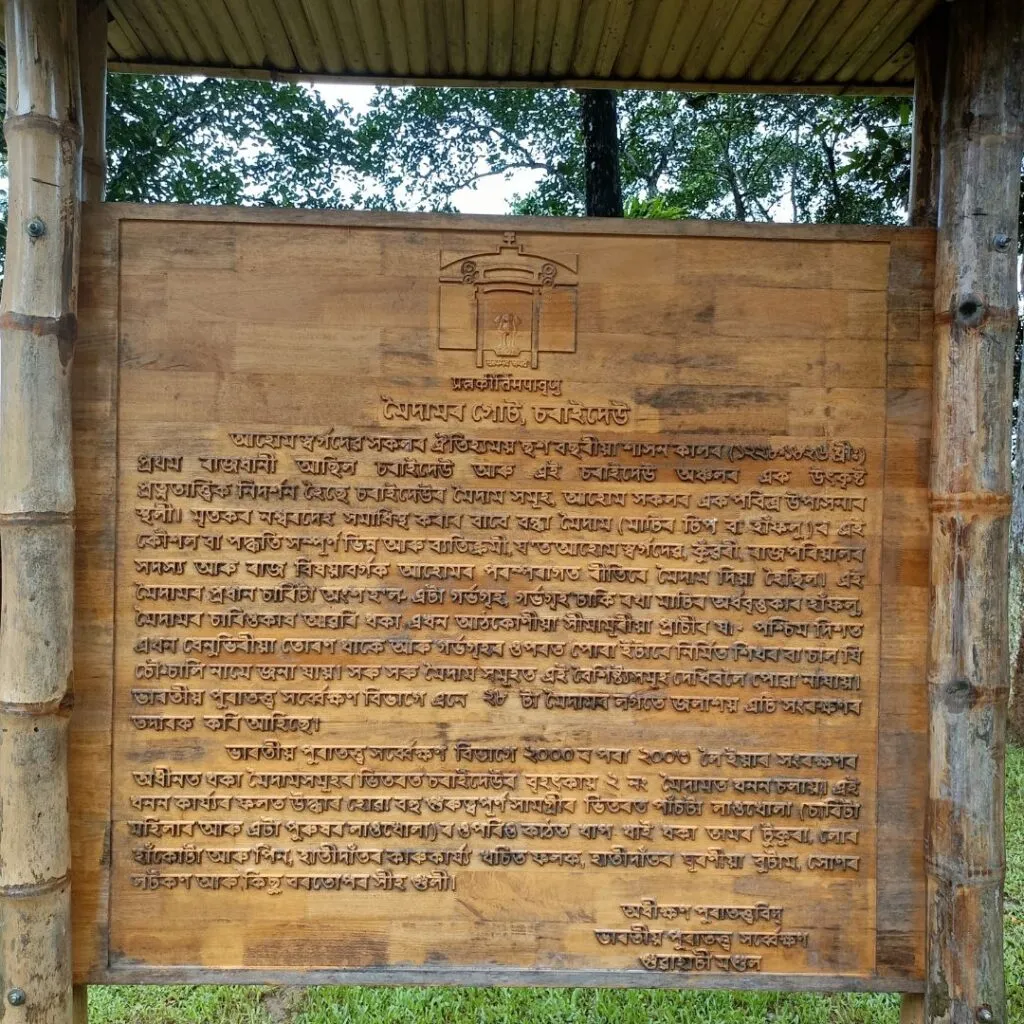 প্ৰত্নকীৰ্ত্তিমপাবৃণু
মৈদামৰ গোট, চৰাইদেউ
আহোম স্বৰ্গদেৱ সকলৰ ঐতিহ্যময় ছশ বছৰীয়া শাসন কালৰ (১২২৮-১৮২৬ খ্ৰীঃ)
প্ৰথম ৰাজধানী আছিল চৰাইদেউ আৰু এই চৰাইদেউ অঞ্চলৰ এক উৎকৃষ্ট
প্ৰত্নতাত্ত্বিক নিদৰ্শন হৈছে চৰাইদেউৰ মৈদাম সমূহ, আহোম সকলৰ এক পবিত্ৰ উপাসনাৰ
স্থলী। মৃতকৰ নশ্বৰদেহ সমাধিস্থ কৰাৰ বাবে বন্ধা মৈদাম (মাটিৰ টিপ বা হাঁফলু)ৰ এই
কৌশল বা পদ্ধতি সম্পূৰ্ণ ভিন্ন আৰু ব্যতিক্ৰমী, য'ত আহোম স্বৰ্গদেৱ, কুঁৱৰী, ৰাজপৰিয়ালৰ
সদস্য আৰু ৰাজ বিষয়াবৰ্গক আহোমৰ পৰম্পৰাগত ৰীতিৰে মৈদাম দিয়া হৈছিল। এই
মৈদামৰ প্ৰধান চাৰিটা অংশ হ'ল- এটা গৰ্ভগৃহ, গৰ্ভগৃহ ঢাকি ৰখা মাটিৰ অৰ্ধবৃত্তকাৰ হাঁফলু,
মৈদামৰ চাৰিওকাষ আৱৰি থকা এখন আঠকোণীয়া সীমামূৰীয়া প্ৰাচীৰ য'ৰ- পশ্চিম দিশত
এখন ধেনুভিৰীয়া তোৰণ থাকে আৰু গৰ্ভগৃহৰ ওপৰত পোৰা ইটাৰে নিৰ্মিত শিখৰ বা চাল যি
চৌ-চালি নামে জনা যায়। সৰু সৰু মৈদাম সমূহত এই বৈশিষ্ট্যসমূহ দেখিবলৈ পোৱা নাযায়।
ভাৰতীয় পুৰাতত্ত্ব সৰ্ব্বেক্ষণ বিভাগে এনে ২৮ টা মৈদামৰ লগতে জলাশয় এটি সংৰক্ষণৰ
তদাৰক কৰি আহিছে।
ভাৰতীয় পুৰাতত্ত্ব সৰ্ব্বেক্ষণ বিভাগে ২০০০ ৰ পৰা ২০০৩ লৈ ইয়াৰ সংৰক্ষণৰ
অধীনত থকা মৈদামসমূহৰ ভিতৰত চৰাইদেউৰ বৃহৎকায় ২ নং মৈদামত খনন চলায়। এই
খনন কাৰ্য্যৰ ফলত উদ্ধাৰ হোৱা বহু গুৰুত্বপূৰ্ণ সামগ্ৰীৰ ভিতৰত পাঁচটা লাওখোলা (চাৰিটা
মহিলাৰ আৰু এটা পুৰুষৰ লাওখোলা)ৰ ওপৰিও কাঠত খাপ খাই থকা তামৰ টুকুৰা, লোৰ
হাঁকোটা আৰু পিন, হাতীদাঁতৰ কাৰুকাৰ্য্য খচিত ফলক, হাতীদাঁতৰ ঘূৰণীয়া বুটাম, সোণৰ
লটকণ আৰু কিছু বৰতোপৰ সীহ গুলী।
অধীক্ষণ পুৰাতত্ত্ববিদ্
ভাৰতীয় পুৰাতত্ত্ব সৰ্ব্বেক্ষণ
গুৱাহাটী মণ্ডল